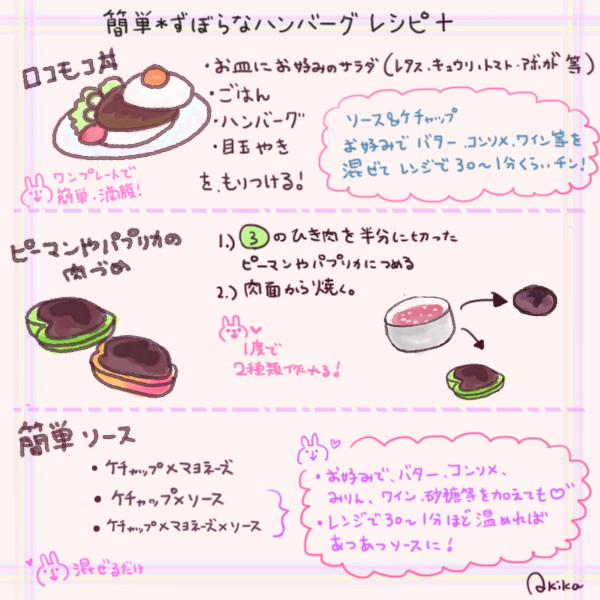 簡単*ずぼらなハンバーグ レシピ+
ロコモコ丼
・お皿にお好みのサラダ(レタス・キュウリ・トマト・アボガド等)
・ごはん
・ハンバーグ
・目玉やき
を、もりつける!
ワンプレートで
簡単・満腹!
ソース&ケチャップ
お好みで バター、コンソメ、ワイン等を
混ぜて レンジで30〜1分くらいチン!
ピーマンやパプリカの
肉づめ
1.) ③のひき肉を半分に切った
ピーマンやパプリカにつめる
2.) 肉面から焼く。
1度で
2種類作れる!
簡単ソース
• ケチャップ×マヨネーズ
• ケチャップ×ソース
• ケチャップ×マヨネーズ×ソース
混ぜるだけ
・お好みで、バター、コンソメ、
みりん、ワイン、砂糖等を加えても♡
・レンジで30〜1分ほど温めれば
あつあつソースに!
Akika